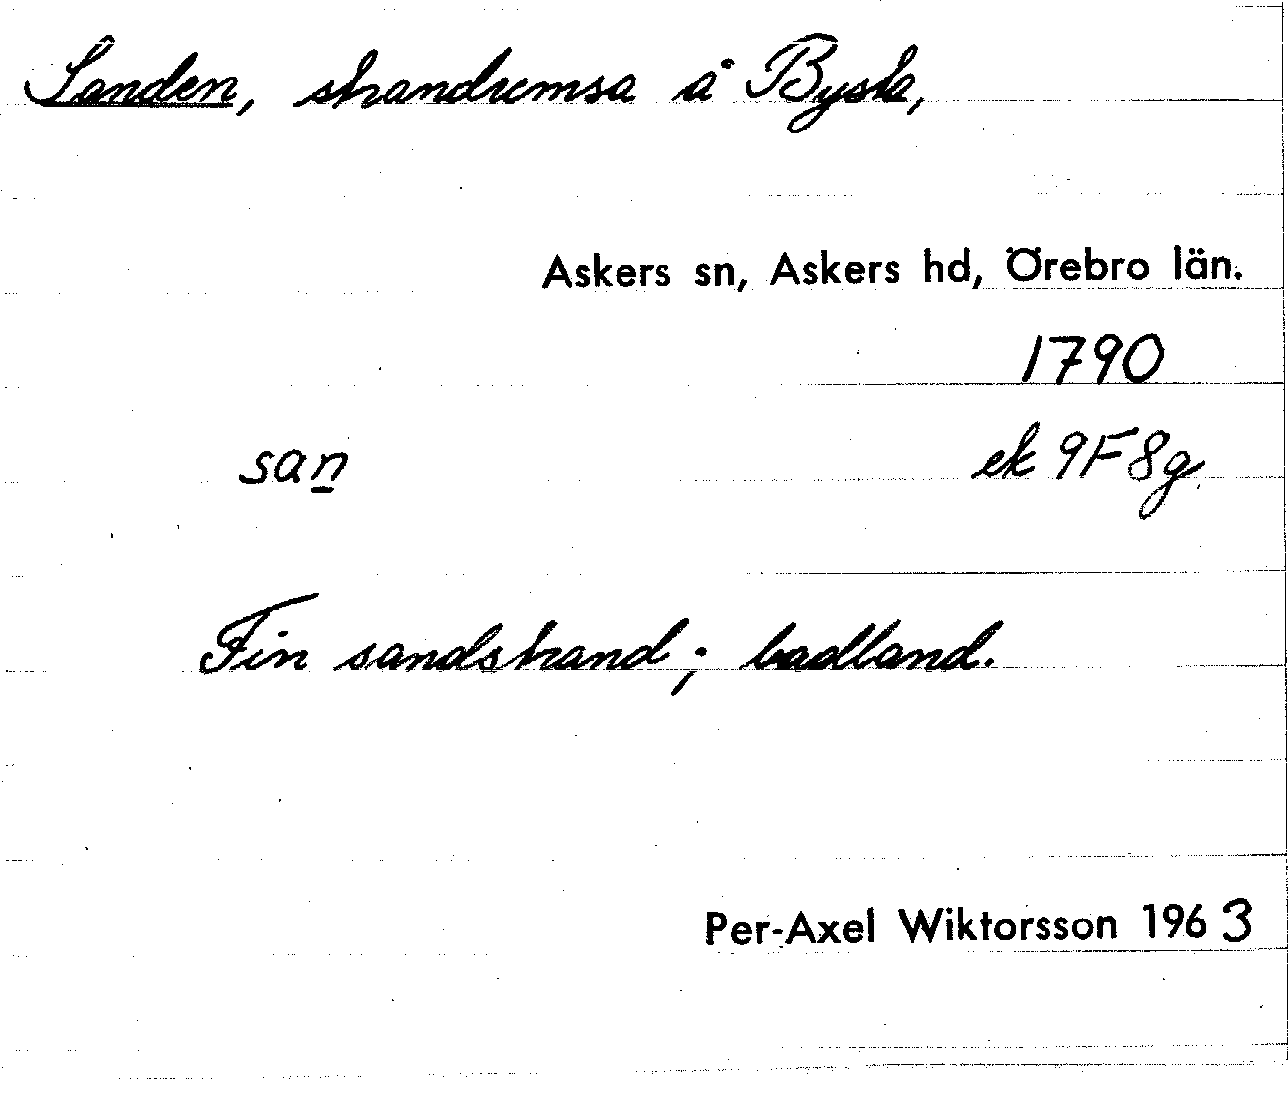 Sanden, strandremsa å Bysta,
Askers sn, Askers hd, Örebro län.
1790
san
ek 9F8g
Fin sandstrand; badland.
Per-Axel Wiktorsson 1963